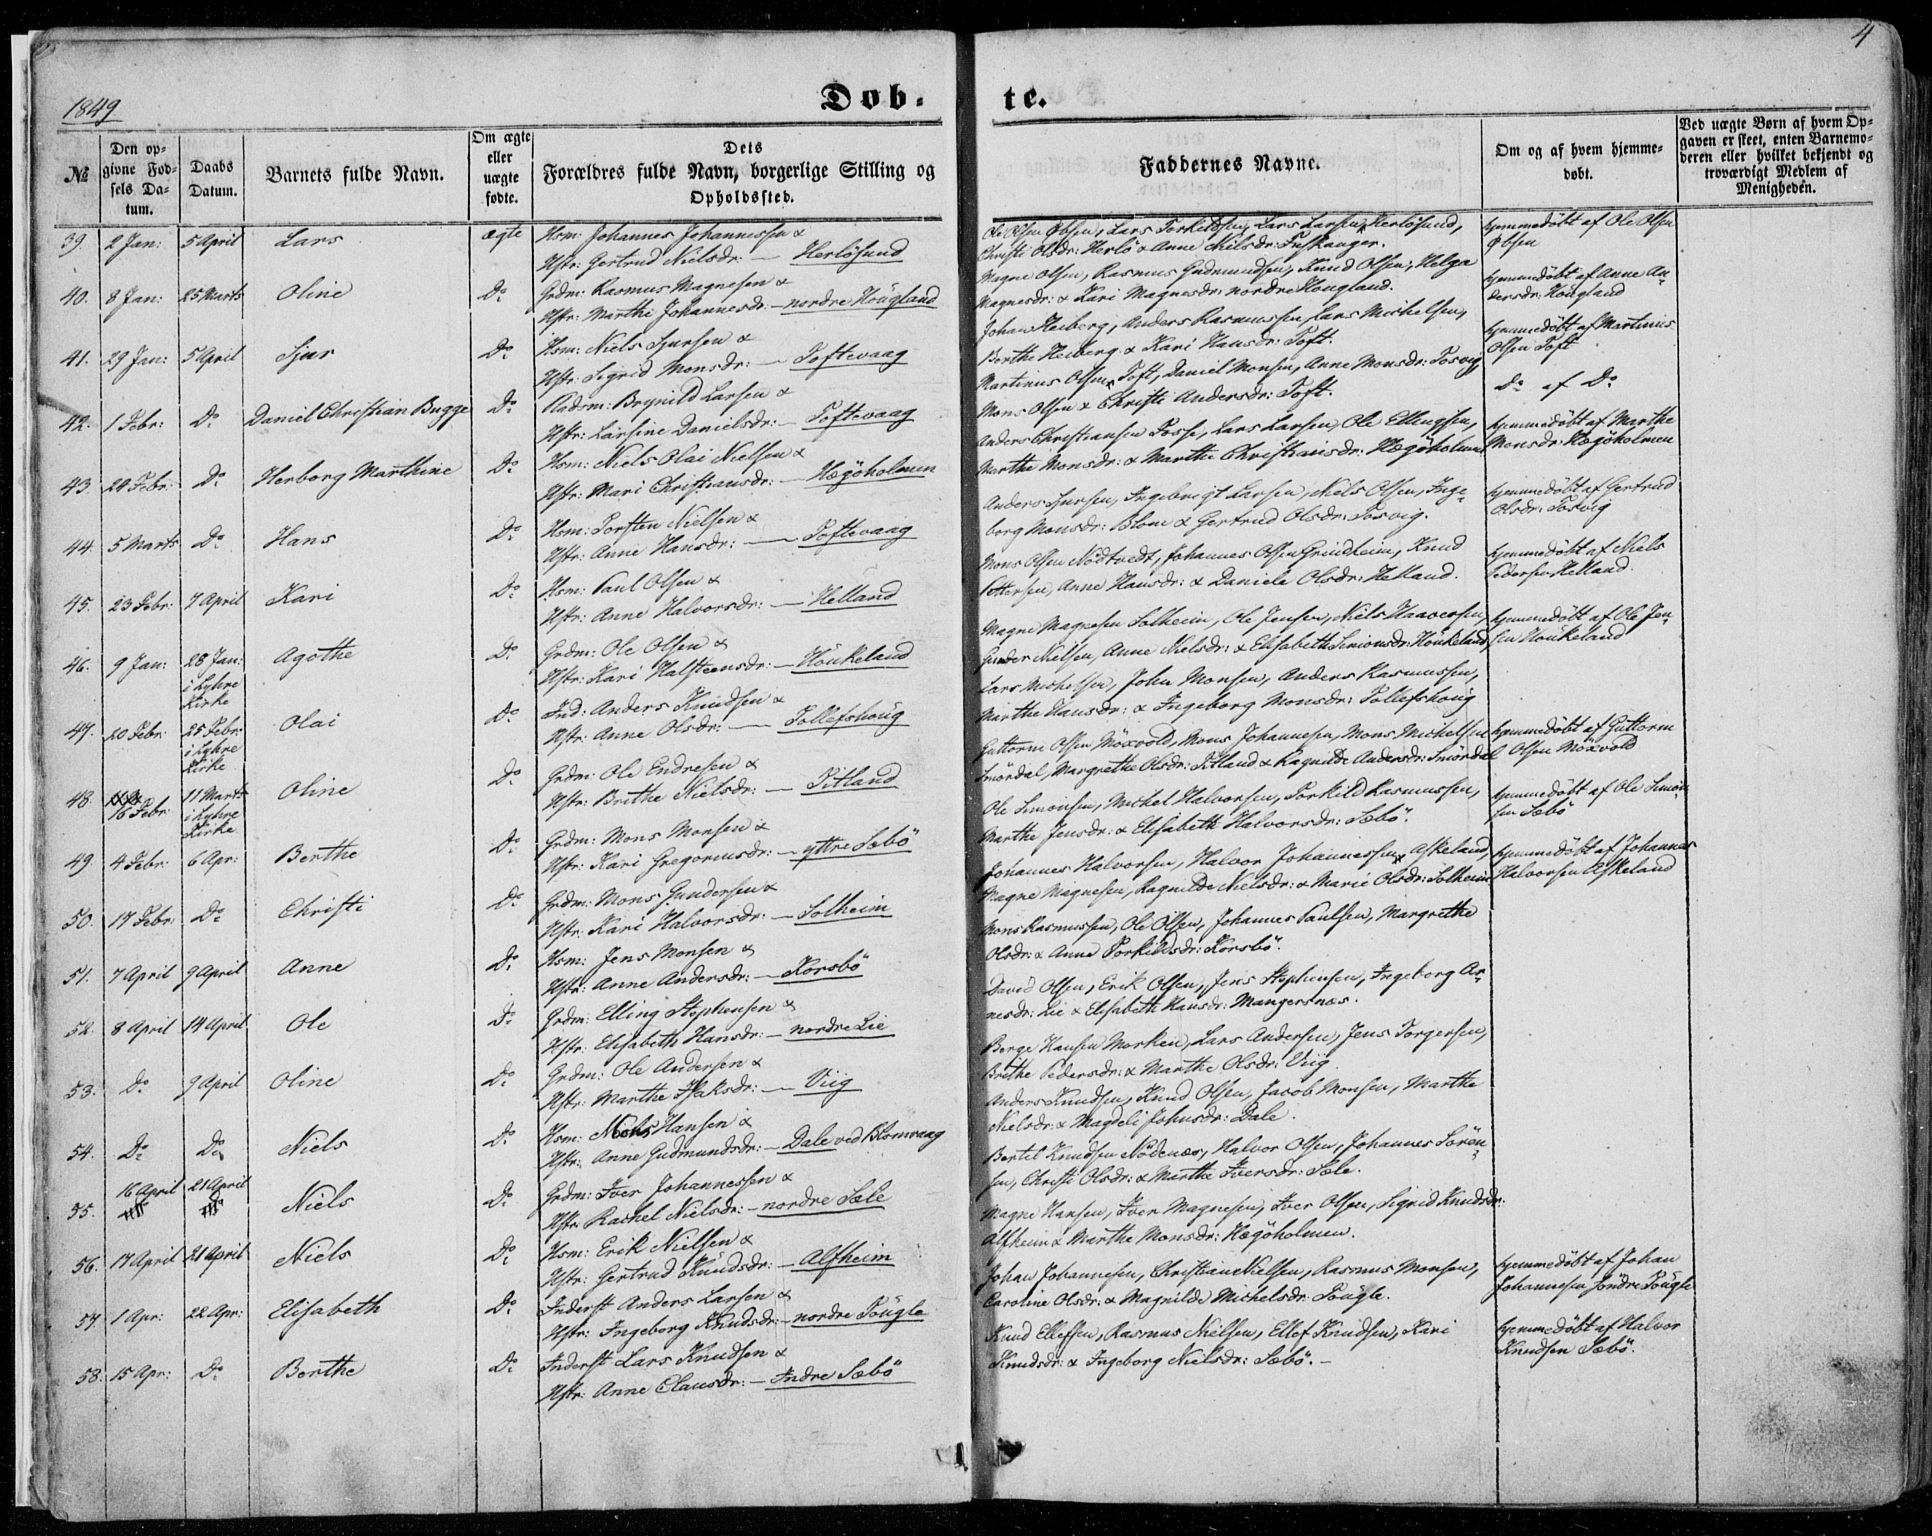 4
1849
Døb-
te.
№
Den op-
givne Fød-
sels Da-
tum.
Daabs
Datum.
Barnets fulde Navn.
Om ægte
eller
uægte
fødte.
Dets
Forældres fulde Navn, borgerlige Stilling og
Opholdssted.
Faddernes Navne.
Om og af hvem hjemme-
døbt.
Ved uægte Børn af hvem Op-
gaven er skeet, enten Barnemo-
deren eller hvilket bekjendt og
troværdigt Medlem af
Menigheden.
39. 2 Jan: 5 April Lars ægte Hsm: Johannes Johannessen &
Hstr: Gertrud Nielsdr: — Herløsund
Ole Olsen Øbsen, Lars Torkeldsen, Lars Larsen Herløsund,
Christi Olsdr: Herlø & Anne Nielsdr: Tuskanger.
hjemmedøbt af Ole Olsen
Øbsen
40. 8 Jan: 25 Marts Oline Do Grdm: Rasmus Magnesen &
Hstr: Marthe Johannesdr: — nordre Hougland
Magne Olsen, Rasmus Gudmundsen, Knud Olsen, Helga
Magnesdr: & Kari Magnesdr: nordre Hougland.
hjemmedøbt af Anne An-
dersdr: Hougland
41. 29 Jan: 5 April Sjur Do Hsm: Niels Sjursen &
Hstr: Sigrid Monsdr: — Toftevaag
Johan Heiberg, Anders Rasmussen, Lars Michelsen,
Berthe Heiberg & Kari Hansdr: Toft.
hjemmedøbt af Martinus
Olsen Toft
42. 1 Febr: Do Daniel Christian Bugge Do Andsm: Brynild Larsen &
Hstr: Larsine Danielsdr: — Toftevaag
Martinus Olsen Toft, Daniel Monsen, Anne Monsdr: Tosvig,
Mons Olsen & Christi Andersdr: Toft.
Do af Do
43. 24 Febr: Do Herborg Marthine Do Hsm: Niels Olai Nielsen &
Hstr: Mari Christiansdr: — Hægøholmen
Anders Christiansen Fosse, Lars Larsen, Ole Ellingsen,
Marthe Monsdr: & Marthe Christiansdr: Hægøholmen
hjemmedøbt af Marthe
Monsdr: Hægøholmen
44. 5 Marts Do Hans Do Hsm: Torsten Nielsen &
Hstr: Anne Hansdr: — Toftevaag
Anders Sjursen, Ingebrigt Larsen, Niels Olsen, Inge-
borg Monsdr: Blom & Gertrud Olsdr: Tosvig.
hjemmedøbt af Gertrud
Olsdr: Tosvig
45. 23 Febr: 7 April Kari Do Hsm: Paul Olsen &
Hstr: Anne Halvorsdr: — Helland
Mons Olsen Nødtvedt, Johannes Olsen Grindheim, Knud
Pettersen, Anne Hansdr: & Daniele Olsdr: Helland.
hjemmedøbt af Niels
Pedersen Helland.
46. 9 Jan: 28 Jan: i Lyhre Kirke Agothe Do Grdm: Ole Olsen &
Hstr: Kari Halsteensdr: — Houkeland
Magne Magnesen Solheim, Ole Jensen, Niels Haavorsen,
Gunder Nielsen, Anne Nielsdr: & Elisabeth Simonsdr: Houkeland
hjemmedøbt af Ole Jen-
sen Houkeland
47. 20 Febr: 25 Febr: i Lyhre Kirke Olai Do Ind: Anders Knudsen &
Hstr: Anne Olsdr: — Tollefshoug
Lars Michelsen, John Monsen, Anders Rasmussen,
Marthe Hansdr: & Ingeborg Monsdr: Tollefshoug
48. 16 Febr: 11 Marts i Lyhre Kirke Oline Do Grdm: Ole Endresen &
Hstr: Brithe Nielsdr: — Titland
Guttorm Olsen Moxvold, Mons Johannesen, Mons Michelsen
Smørdal, Margrethe Olsdr: Titland & Ragnilde Andersdr: Smørdal
hjemmedøbt af Guttorm
Olsen Moxvold
49. 4 Febr: 6 Apr: Berthe Do Grdm: Mons Monsen &
Hstr: Kari Gregoriusdr: — yttre Sæbø
Ole Simonsen, Michel Halvorsen, Torkild Rasmussen,
Marthe Jensdr: & Elisabeth Halvorsdr: Sæbø.
hjemmedøbt af Ole Simon-
sen Sæbø
50. 17 Febr: Do Christi Do Grdm: Mons Gundersen &
Hstr: Kari Halvorsdr: — Solheim
Johannes Halvorsen, Halvor Johannessen Askeland,
Magne Magnesen, Ragnilde Nielsdr: & Marie Olsdr: Solheim
hjemmedøbt af Johannes
Halvorsen Askeland
51. 7 April 9 April Anne Do Hsm: Jens Monsen &
Hstr: Anne Andersdr: — Korsbø
Mons Rasmussen, Ole Olsen, Johannes Paulsen, Margrethe
Olsdr: & Anne Torkildsdr: Korsbø.
52. 8 April 14 April Ole Do Grdm: Elling Stephensen &
Hstr: Elisabeth Hansdr: — nordre Lie
David Olsen, Erik Olsen, Jens Stephensen, Ingeborg Ar-
nesdr: Lie & Elisabeth Hansdr: Mangersnæs.
53. Do 9 April Oline Do Grdm: Ole Andersen &
Hstr: Marthe Isaksdr: — Viig
Berge Hansen Morken, Lars Andersen, Jens Torgersen,
Brithe Pedersdr: & Marthe Olsdr: Viig.
54. Do Do Niels Do Hsm: Mons Hansen &
Hstr: Anne Gudmundsdr: — Dale ved Blomvaag
Anders Knudsen, Knud Olsen, Jacob Monsen, Marthe
Nielsdr: & Magdeli Johnsdr: Dale.
55. 16 April 21 April Niels Do Grdm: Iver Johannessen &
Hstr: Rachel Nielsdr: — nordre Sæle
Bertel Knudsen Nødenæs, Halvor Olsen, Johannes Søren-
sen, Christi Olsdr: & Marthe Iversdr: Sæle.
56. 17 April 21 April Niels Do Hsm: Erik Nielsen &
Hstr: Gertrud Knudsdr: — Alfheim
Magne Hansen, Iver Magnesen, Iver Olsen, Sigrid Knudsdr:
Alfheim & Marthe Monsdr: Hægøholmen.
57. 1 Apr: 22 Apr: Elisabeth Do Inderst Anders Larsen &
Hstr: Ingeborg Knudsdr: — nordre Fougle
Johan Johannesen, Christian Nielsen, Rasmus Monsen,
Caroline Olsdr: & Magnilde Michelsdr: Fougle.
hjemmedøbt af Johan
Johannesen søndre Fougle
58. 15 Apr: Do Berthe Do Inderst Lars Knudsen &
Hstr: Anne Clausdr: — Indre Sæbø
Knud Ellefsen, Rasmus Nielsen, Ellef Knudsen, Kari
Knudsdr: & Ingeborg Nielsdr: Sæbø. —
hjemmedøbt af Halvor
Knudsen Sæbø.